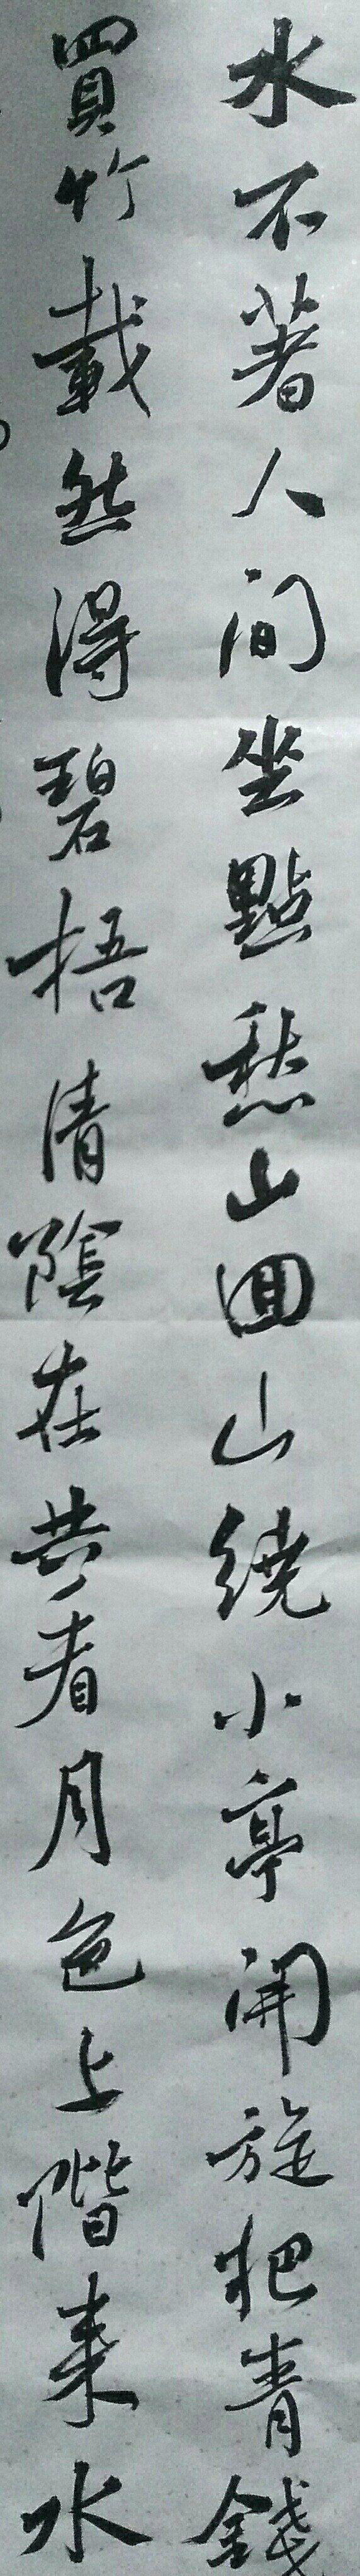 水不著人間坐點愁山回山繞小亭開旋把青錢
買竹載然得碧梧清陰在共看月色上階來水